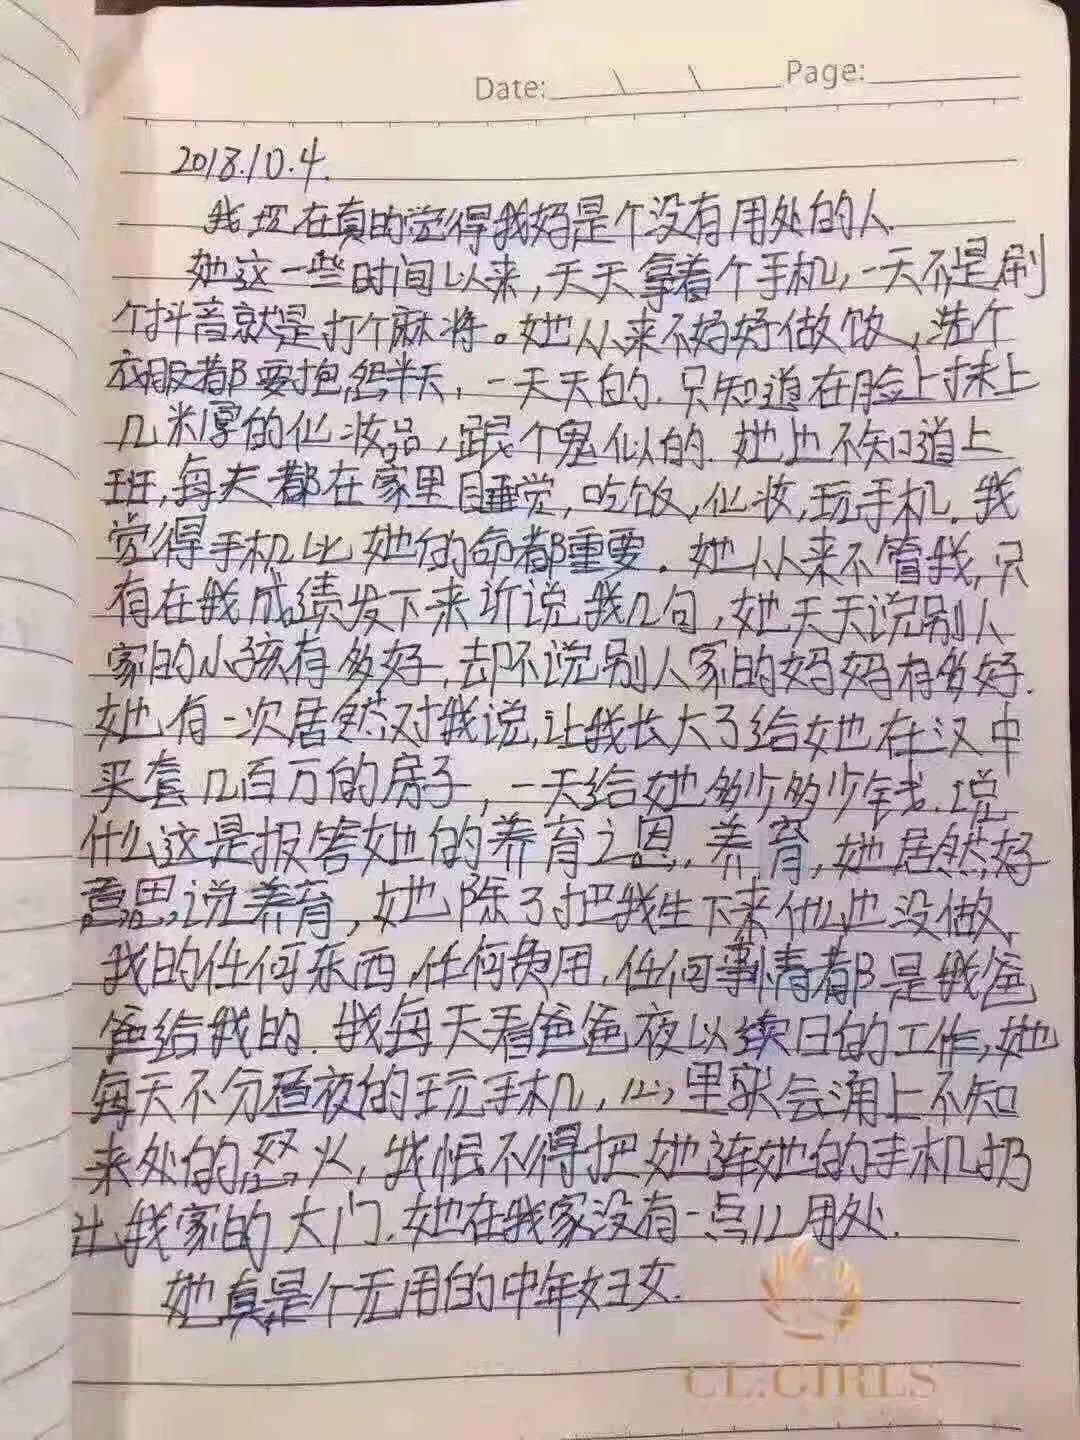 Date: \ \ Page:
2018.10.4.
我现在真的觉得我妈是个没有用处的人.
她这一些时间以来,天天拿着个手机,一天不是刷
个抖音就是打个麻将。她从来不好好做饭,洗个
衣服都要抱怨半天,一天天的.只知道在脸上抹上
几米厚的化妆品,跟个鬼似的.她也不知道上
班,每天都在家里睡觉,吃饭,化妆,玩手机.我
觉得手机比她的命都重要.她从来不管我,只
有在我成绩发下来听说我几句,她天天说别人
家的小孩有多好,却不说别人家的妈妈有多好.
她有一次居然对我说,让我长大了给她在汉中
买套几百万的房子,一天给她多少多少钱.说
什么这是报答她的养育之恩.养育,她居然好
意思说养育,她除了把我生下来什么也没做.
我的任何东西,任何费用,任何事情都是我爸
爸给我的.我每天看爸爸夜以续日的工作,她
每天不分昼夜的玩手机,心里就会涌上不知
来处的怒火,我恨不得把她连她的手机扔
出我家的大门.她在我家没有一点儿用处.
她真是个无用的中年妇女.
CL:GIRLS